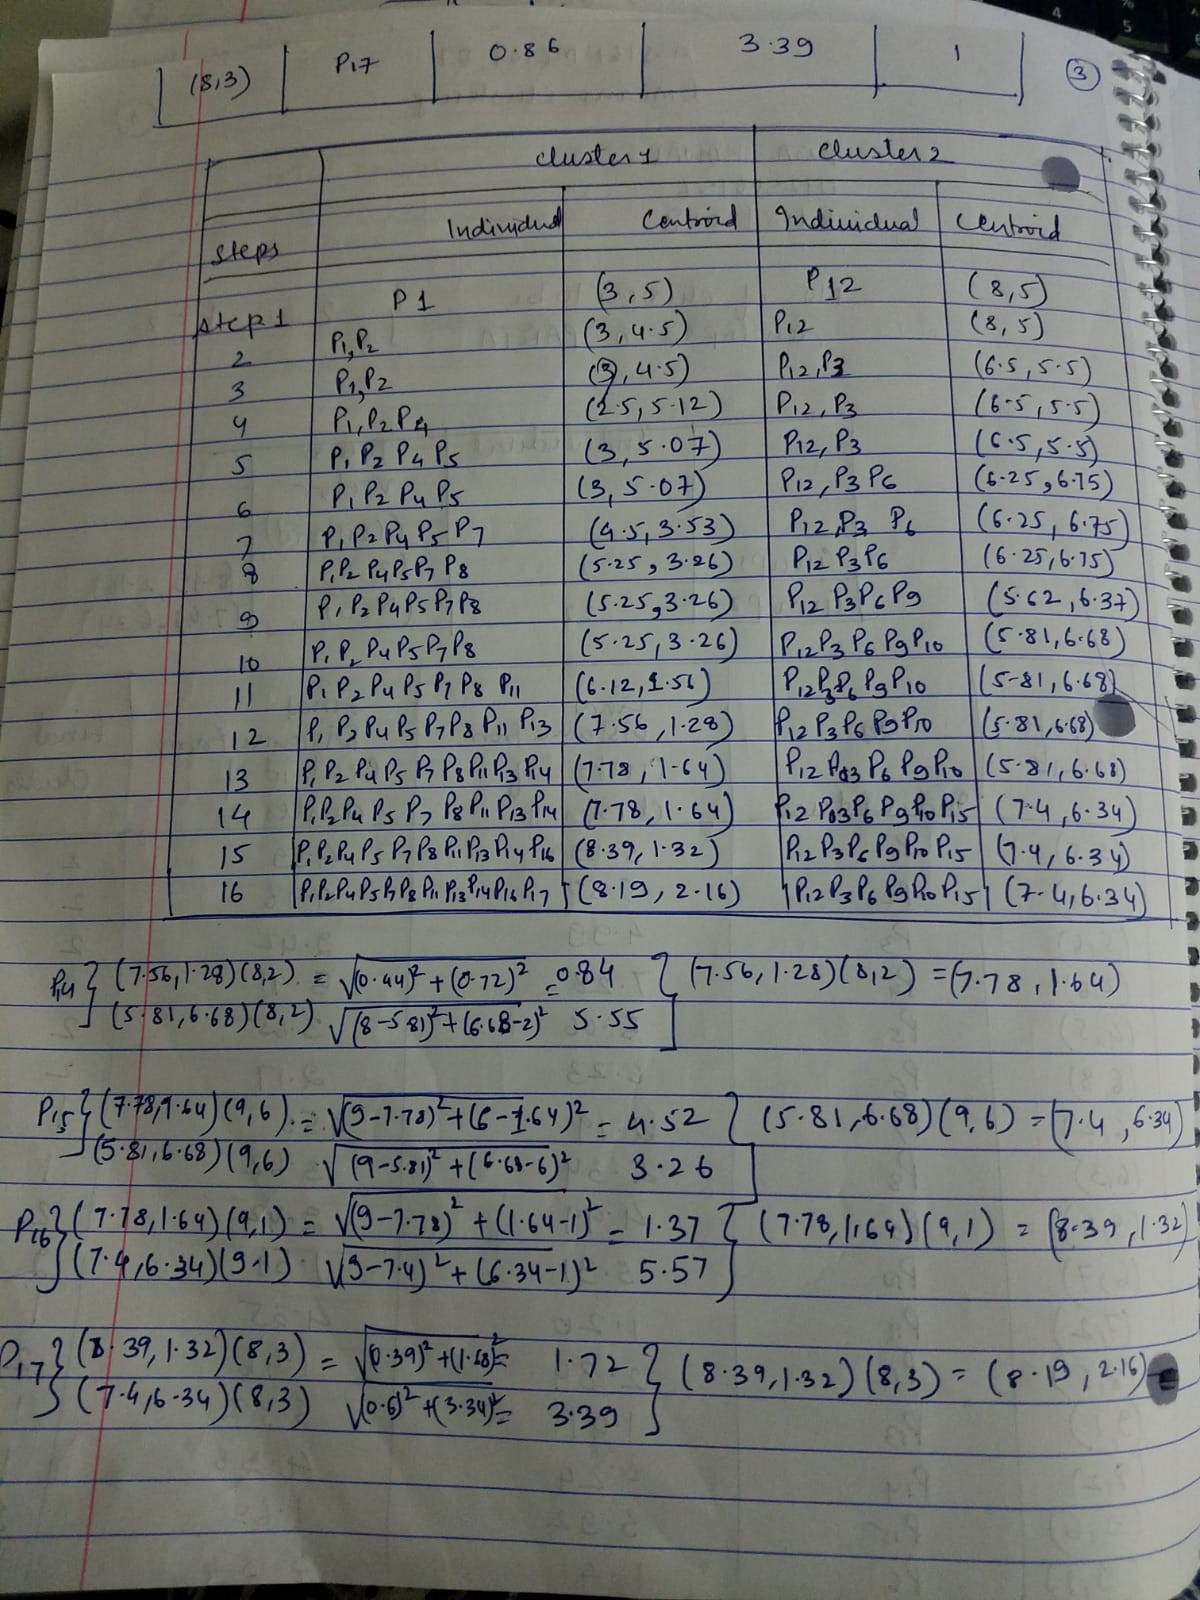 (8,3) P17 0.86 3.39 1 3
cluster 1 cluster 2
Steps Individual Centroid Individual Centroid
Step 1 P1 (3,5) P12 (8,5)
2 P1,P2 (3,4.5) P12 (8,5)
3 P1,P2 (3,4.5) P12,P3 (6.5,5.5)
4 P1,P2 P4 (2.5,5.12) P12,P3 (6.5,5.5)
5 P1 P2 P4 P5 (3,5.07) P12,P3 (6.5,5.5)
6 P1 P2 P4 P5 (3,5.07) P12,P3 P6 (6.25,6.75)
7 P1 P2 P4 P5 P7 (4.5,3.53) P12,P3 P6 (6.25,6.75)
8 P1P2 P4P5P7 P8 (5.25,3.26) P12 P3P6 (6.25,6.75)
9 P1 P2 P4P5 P7P8 (5.25,3.26) P12 P3P6 P9 (5.62,6.37)
10 P1 P2 P4P5P7P8 (5.25,3.26) P12P3 P6 P9P10 (5.81,6.68)
11 P1 P2 P4 P5 P7 P8 P11 (6.12,1.56) P12P3P6 P9P10 (5.81,6.68)
12 P1 P2 P4 P5 P7P8 P11 P13 (7.56,1.28) P12 P3P6 P9P10 (5.81,6.68)
13 P1 P2 P4 P5 P7 P8P11P13 P14 (7.78,1.64) P12 P3 P6 P9P10 (5.81,6.68)
14 P1P2P4 P5 P7 P8P11P13P14 (7.78,1.64) P12 P3P6 P9P10P15 (7.4,6.34)
15 P1P2P4P5 P7P8P11P13P14P16 (8.39,1.32) P12P3P6P9P10 P15 (7.4,6.34)
16 P1P2P4P5P7P8P11P13P14P16P17 (8.19,2.16) P12P3P6P9P10P15 (7.4,6.34)
P14 } (7.56,1.28)(8,2) = √(0.44)²+(0.72)² = 0.84 } (7.56,1.28)(8,2) = (7.78,1.64)
(5.81,6.68)(8,2) √(8-5.81)²+(6.68-2)² 5.55
P15 } (7.78,1.64)(9,6) = √(9-7.78)²+(6-1.64)² = 4.52 } (5.81,6.68)(9,6) = (7.4,6.34)
(5.81,6.68)(9,6) √(9-5.81)²+(6.68-6)² 3.26
P16 } (7.78,1.64)(9,1) = √(9-7.78)²+(1.64-1)² = 1.37 } (7.78,1.64)(9,1) = (8.39,1.32)
(7.4,6.34)(9.1) √(9-7.4)²+(6.34-1)² 5.57
P17 } (8.39,1.32)(8,3) = √(0.39)²+(1.68)² = 1.72 } (8.39,1.32)(8,3) = (8.19,2.16)
(7.4,6.34)(8,3) √(0.6)²+(3.34)² = 3.39